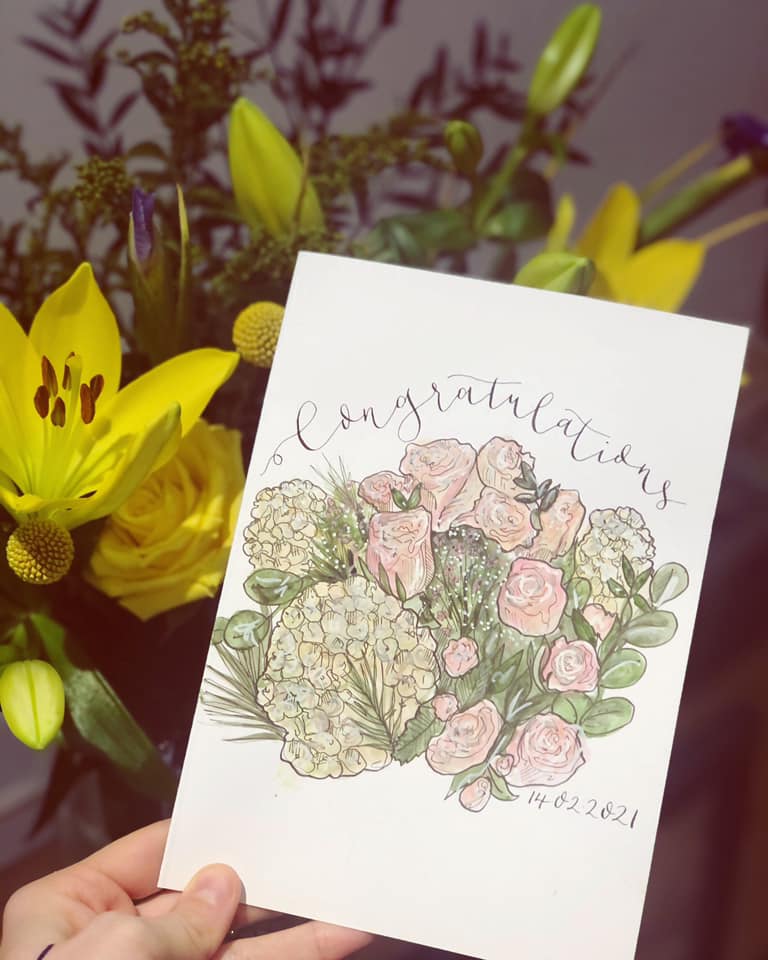 Congratulations
14022021